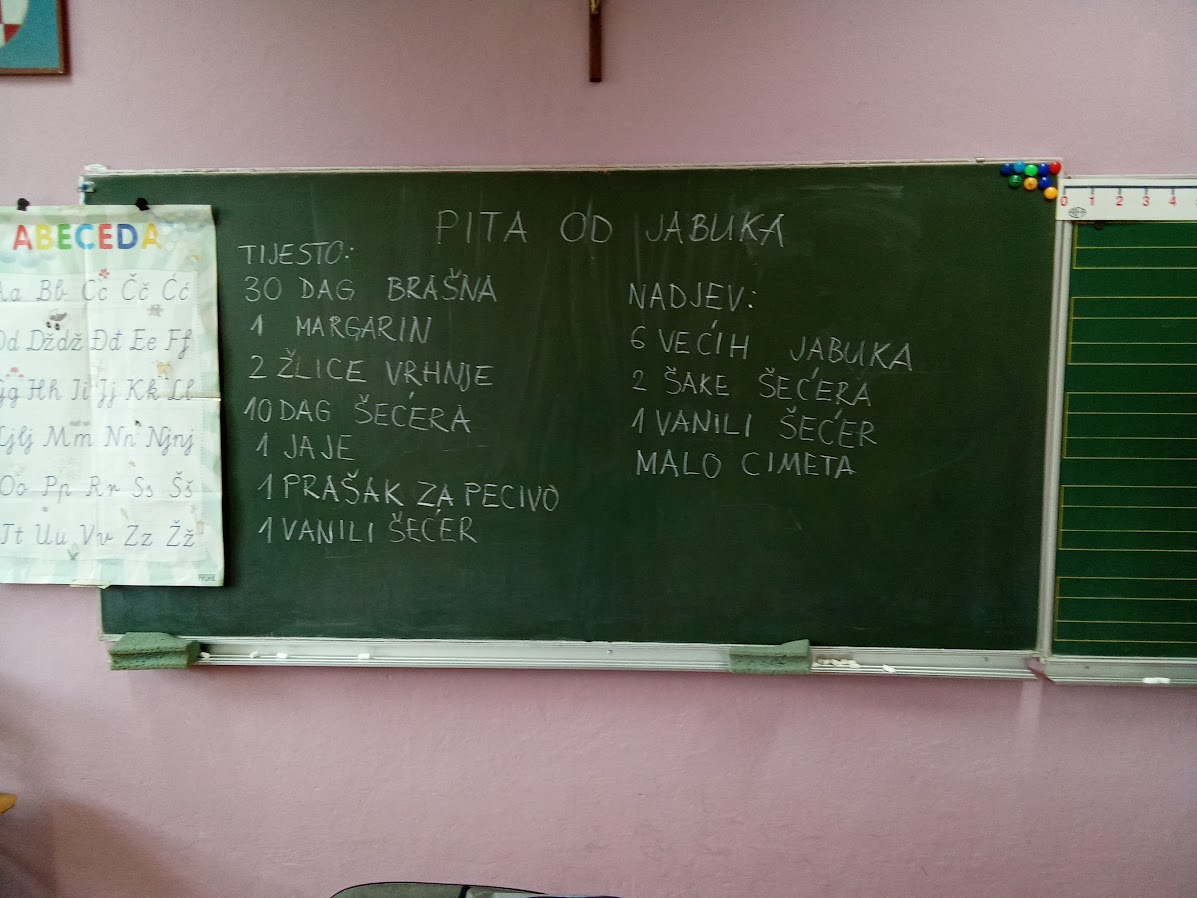 ABECEDA
Aa Bb Cc Čč Ćć
Dd Dždž Đđ Ee Ff
Gg Hh Ii Jj Kk Ll
Ljlj Mm Nn Njnj
Oo Pp Rr Ss Šš
Tt Uu Vv Zz Žž
PITA OD JABUKA
TIJESTO:
30 DAG BRAŠNA
1 MARGARIN
2 ŽLICE VRHNJE
10 DAG ŠEĆERA
1 JAJE
1 PRAŠAK ZA PECIVO
1 VANILI ŠEĆER
NADJEV:
6 VEĆIH JABUKA
2 ŠAKE ŠEĆERA
1 VANILI ŠEĆER
MALO CIMETA
0 1 2 3 4